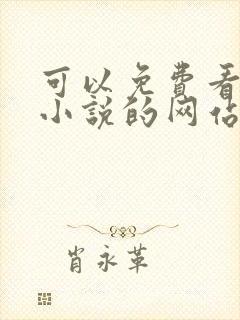 可以免费看
小说的网站
肖永革